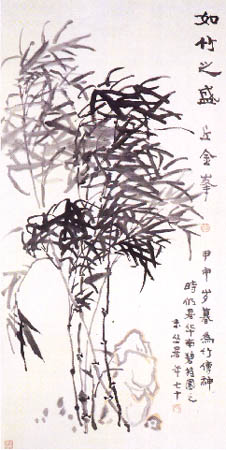 如竹之盛
丘金峯
甲申岁暮为竹传神
时仍暑华南碧桂园之
年七十